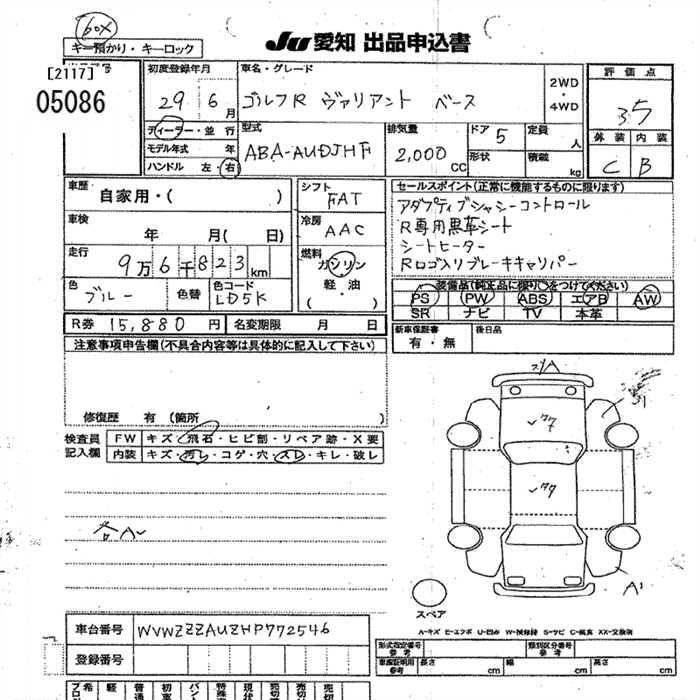 box
キー預かり・キーロック
JU 愛知 出品申込書
[2117]
05086
初度登録年月
29 6 月
車名・グレード
ゴルフR ヴァリアント ベース
2WD
・
4WD
評価点
3.5
外装 内装
C B
ディーラー・並行
モデル年式 年
ハンドル 左・右
型式
ABA-AUDJHF
排気量
2,000 CC
ドア 5
形状
定員 人
積載 kg
車歴
自家用・( )
シフト
FAT
車検
年 月( 日)
冷房
AAC
走行
9万6千823km
燃料
ガソリン
軽・油
( ・ )
色
ブルー
色替
色コード
LD5K
R券 15,880 円
名変期限 月 日
セールスポイント(正常に機能するものに限ります)
アダプティブシャシーコントロール
R専用黒革シート
シートヒーター
Rロゴ入りブレーキキャリパー
装備品(純正品に限り○をつけてください)
PS PW ABS エアB AW
SR ナビ TV 本革
新車保証書
有・無
後日品
注意事項申告欄(不具合内容等は具体的に記入して下さい)
修復歴 有(箇所 )
検査員
記入欄
FW キズ・飛石・ヒビ割・リペア跡・X要
内装 キズ・汚レ・コゲ・穴・スレ・キレ・破レ
各A
スペア
A'
A-キズ E-エクボ U-凹み W-補修跡 S-サビ C-腐食 XX-交換済
車台番号 WVWZZZAUZHP772546
登録番号
形式指定番号
参考
類別区分番号
参考
車庫証明用
参考
長さ cm 幅 cm 高さ cm